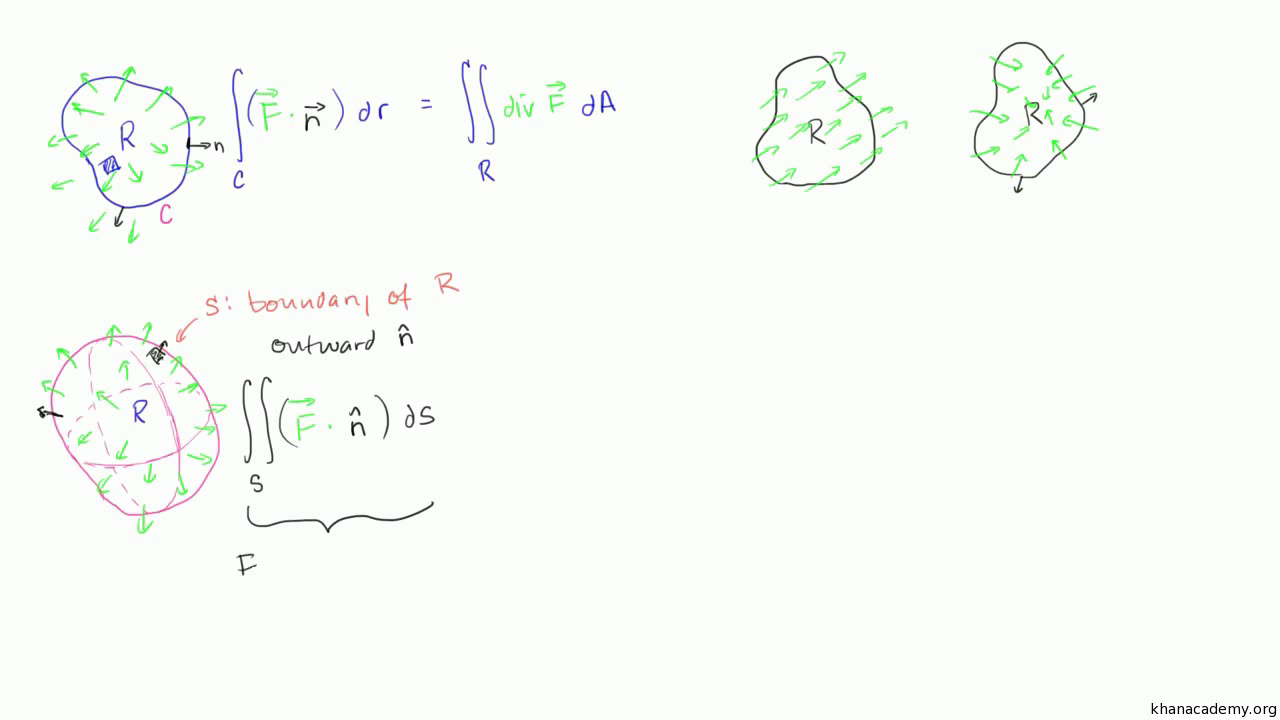 R
n
C
∫ (F⃗ · n⃗) dr = ∬ div F⃗ dA
C
R
R
R
S: boundary of R
outward n̂
R
∬ (F⃗ · n̂) dS
S
F
khanacademy.org